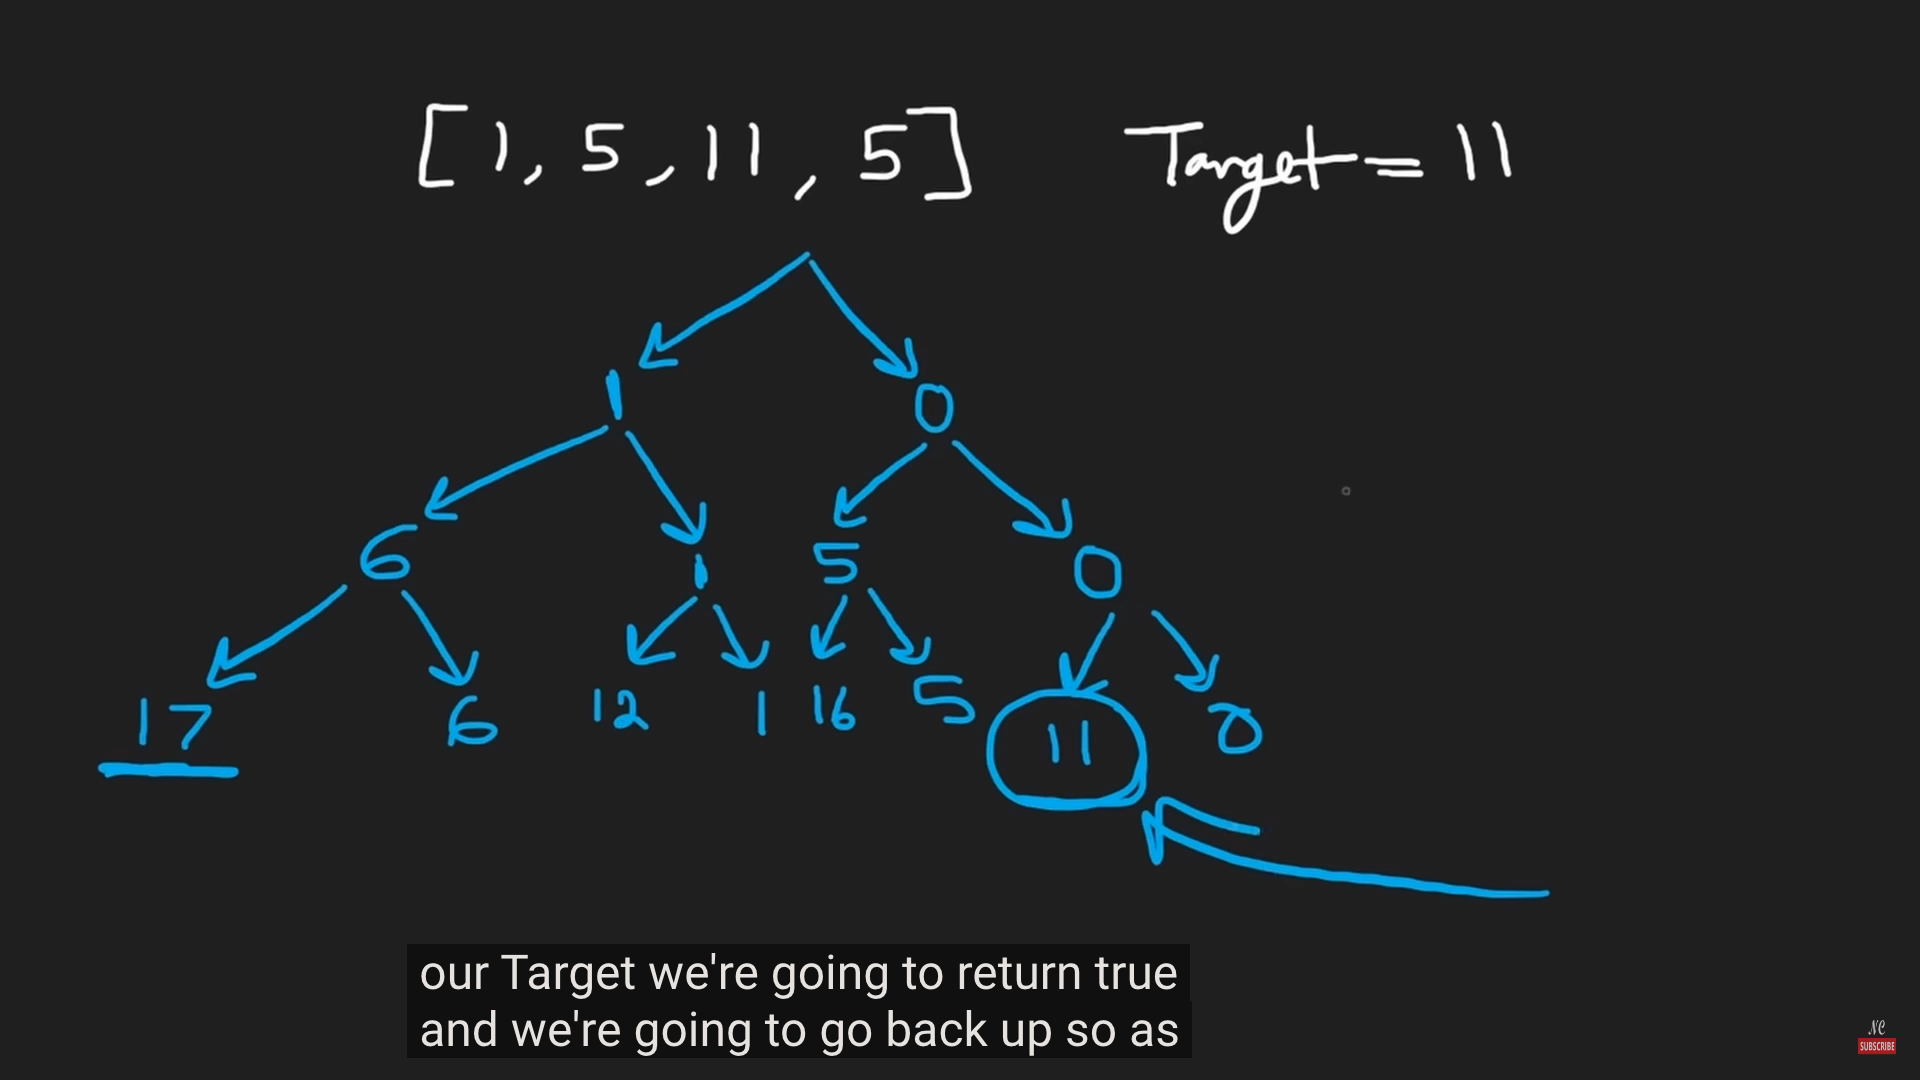 [1, 5, 11, 5] Target = 11
1 0
6 1 5 0
17 6 12 1 16 5 11 0
our Target we're going to return true
and we're going to go back up so as
NC
SUBSCRIBE